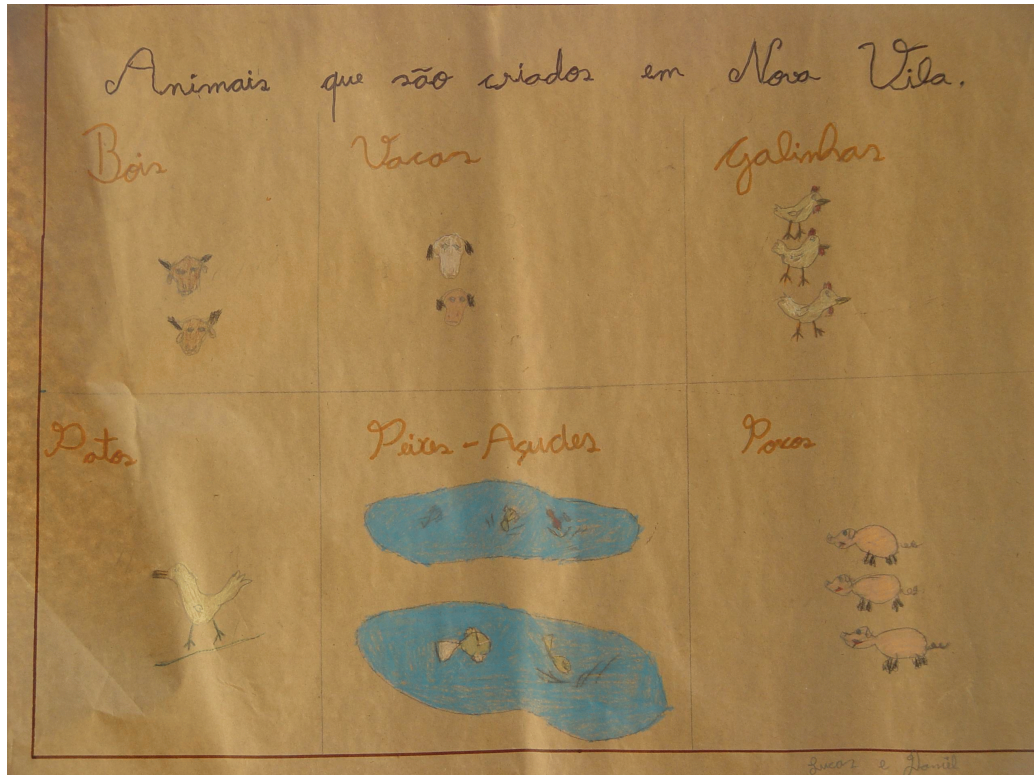 Animais que são criados em Nova Vila.
Bois
Vacas
Galinhas
Patos
Peixes - Açudes
Porcos
Lucas e Daniel